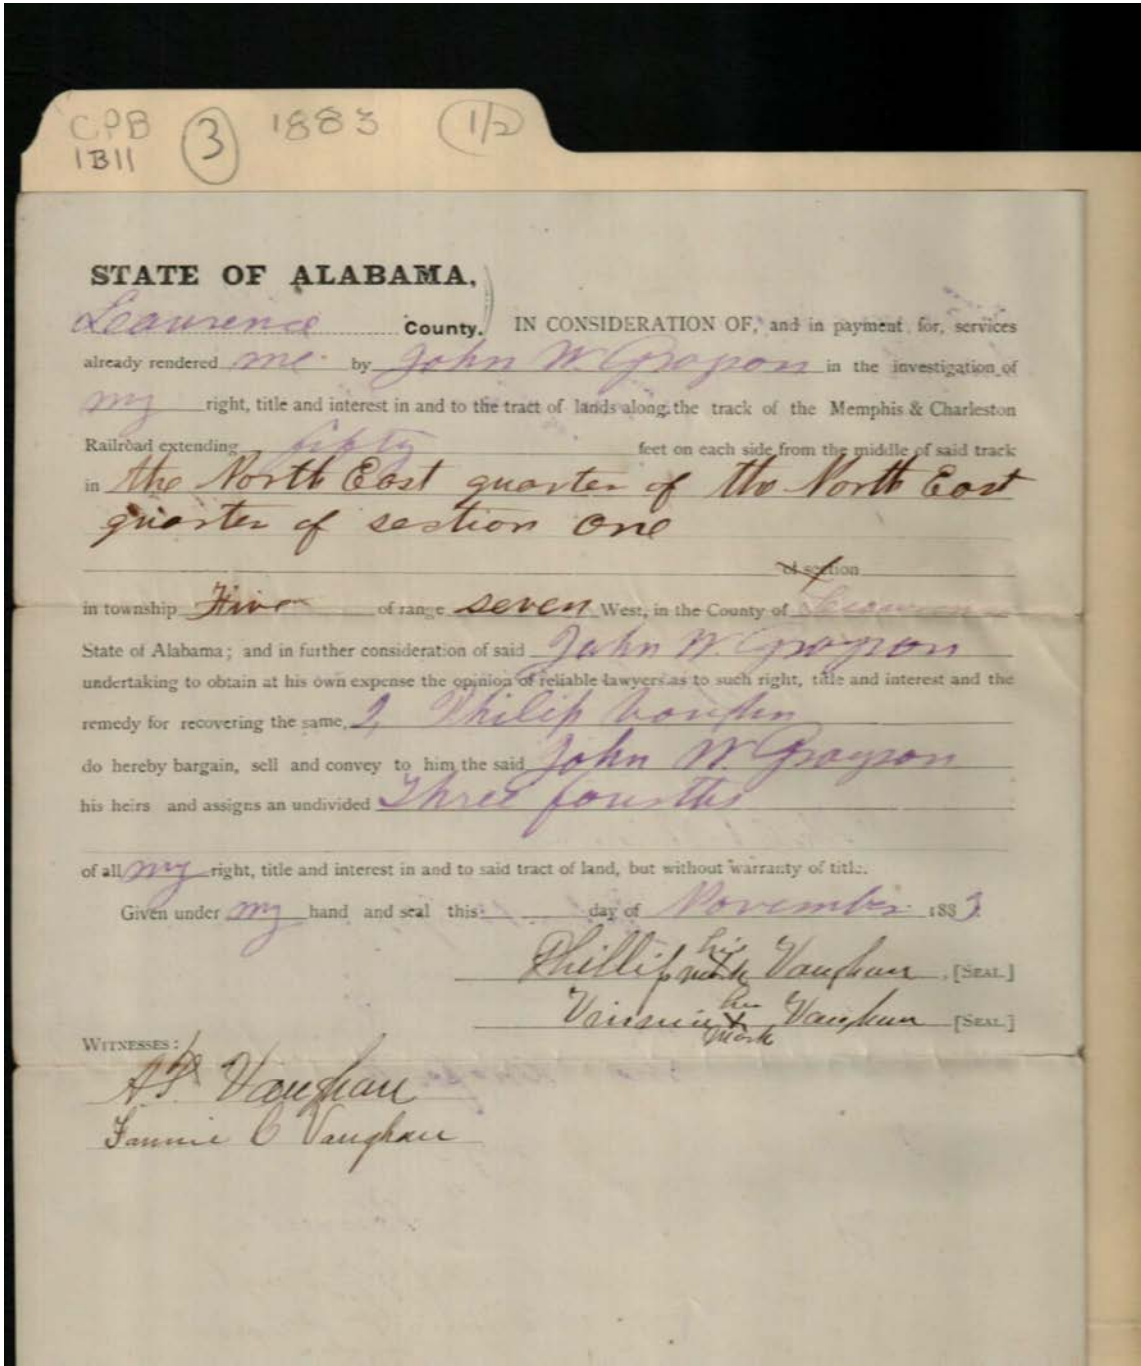 CPB 3 1883 1/2
1B11
STATE OF ALABAMA,
Lawrence County. IN CONSIDERATION OF, and in payment for, services
already rendered me by John W. Grayson in the investigation of
my right, title and interest in and to the tract of lands along the track of the Memphis & Charleston
Railroad extending fifty feet on each side from the middle of said track
in the North East quarter of the North East
quarter of section one
of section
in township Five of range seven West, in the County of Lawrence
State of Alabama; and in further consideration of said John W. Grayson
undertaking to obtain at his own expense the opinion of reliable lawyers as to such right, title and interest and the
remedy for recovering the same, I, Philip
do hereby bargain, sell and convey to him the said John W. Grayson
his heirs and assigns an undivided Three fourths
of all my right, title and interest in and to said tract of land, but without warranty of title.
Given under my hand and seal this day of November 1883
Phillip his X mark Vaughan [SEAL]
her X mark Vaughan [SEAL]
WITNESSES:
Vaughan
Fannie C Vaughan